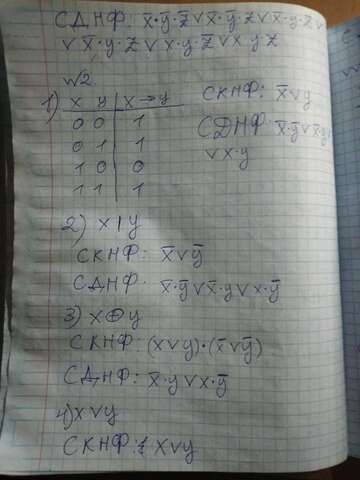 СДНФ: x̄·ȳ·z̄ ∨ x̄·ȳ·z ∨ x̄·y·z̄ ∨
∨ x̄·y·z ∨ x·y·z̄ ∨ x·y·z
№2.
1) x y | x→y
0 0 | 1
0 1 | 1
1 0 | 0
1 1 | 1
СКНФ: x̄∨y
СДНФ: x̄·ȳ∨x̄·y
∨x·y
2) x|y
СКНФ: x̄∨ȳ
СДНФ: x̄·ȳ∨x̄·y∨x·ȳ
3) x⊕y
СКНФ: (x∨y)·(x̄∨ȳ)
СДНФ: x̄·y∨x·ȳ
4) x∨y
СКНФ: x∨y